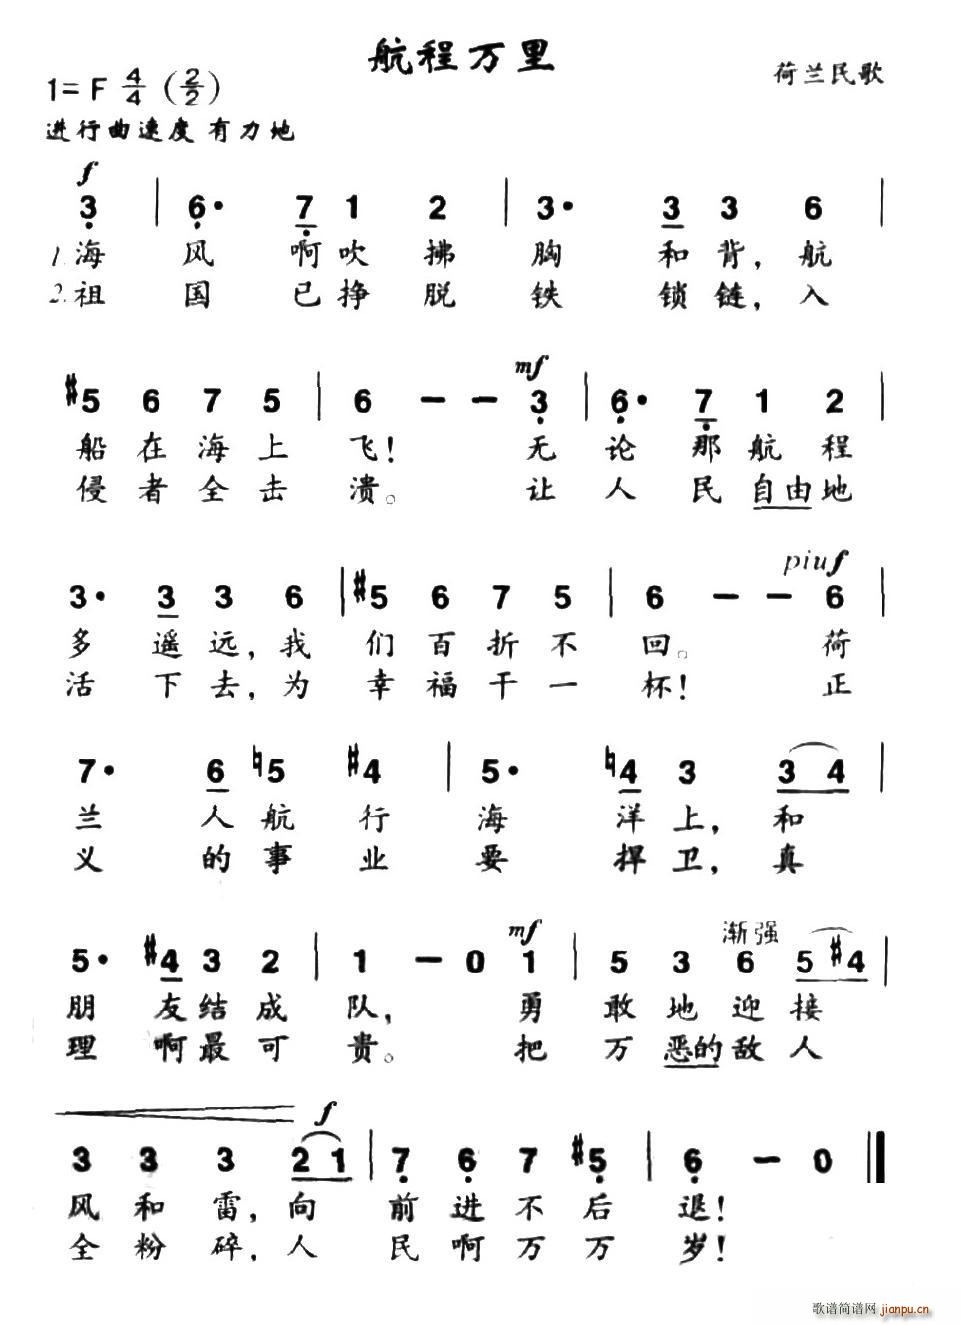 航程万里
荷兰民歌
1= F 4/4 (2/2)
进行曲速度 有力地
f
3 | 6· 7 1 2 | 3· 3 3 6 |
1.海 风 啊吹 拂 胸 和 背, 航
2.祖 国 已挣 脱 铁 锁 链, 入
mf
#5 6 7 5 | 6 - - 3 | 6· 7 1 2 |
船 在 海 上 飞! 无 论 那 航 程
侵 者 全 击 溃。 让 人 民 自由 地
piuf
3· 3 3 6 | #5 6 7 5 | 6 - - 6 |
多 遥 远, 我 们 百 折 不 回。 荷
活 下 去, 为 幸 福 干 一 杯! 正
7· 6 ♮5 #4 | 5· ♮4 3 3 4 |
兰 人 航 行 海 洋 上, 和
义 的 事 业 要 捍 卫, 真
mf 渐强
5· #4 3 2 | 1 - 0 1 | 5 3 6 5 #4 |
朋 友 结 成 队, 勇 敢 地 迎 接
理 啊 最 可 贵。 把 万 恶的 敌 人
f
3 3 3 2 1 | 7 6 7 #5 | 6 - 0 ‖
风 和 雷, 向 前 进 不 后 退!
全 粉 碎, 人 民 啊 万 万 岁!
歌谱简谱网 jianpu.cn